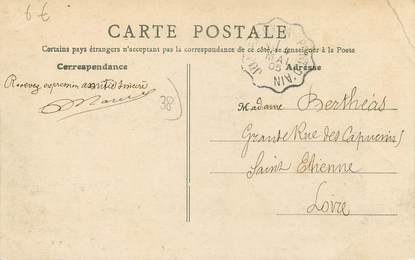 6 €
CARTE POSTALE
Certains pays étrangers n'acceptant pas la correspondance de ce côté, se renseigner à la Poste
Correspondance
Adresse
Recevez
38
Madame Berthéas
Grande Rue des Capucins
Saint Etienne
Loire
MAI
05
AIN